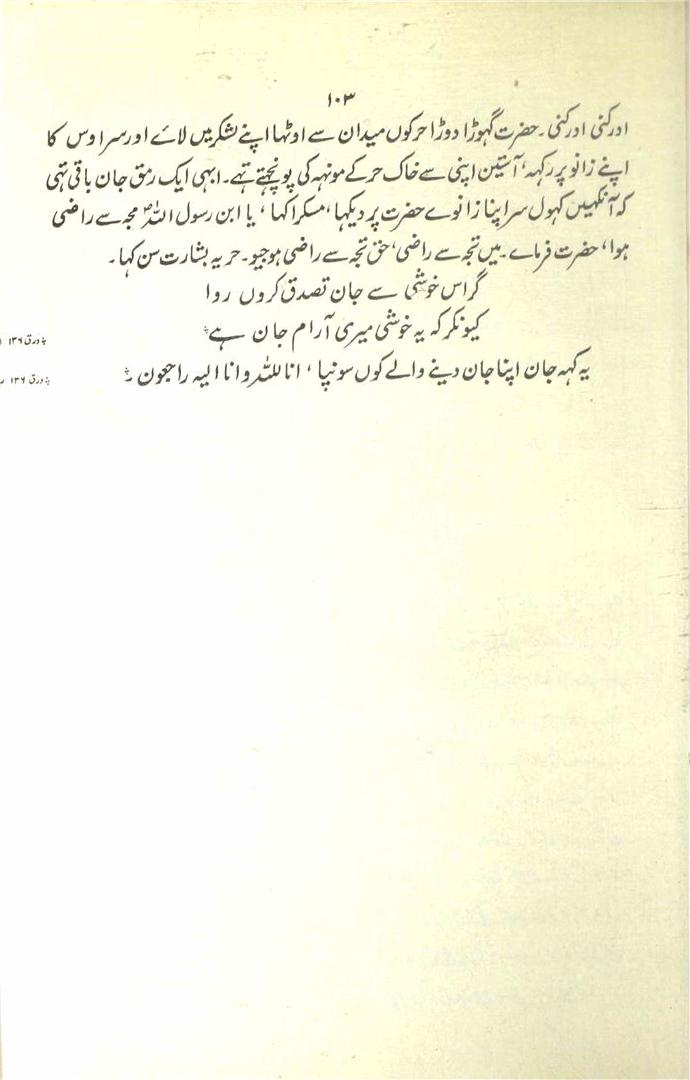 ۱۰۳
ادرکنی ادرکنی۔ حضرت گہوڑا دوڑا حر کوں میدان سے اوٹھا اپنے لشکر میں لائے اور سر اوس کا
اپنے زانو پر رکہہ، آستین اپنی سے خاک حر کے مونہہ کی پونچتے تہے۔ ابہی ایک رمق جان باقی تہی
کہ آنکہیں کہول سر اپنا زانوے حضرت پر دیکہا، مسکرا کہا، یا ابن رسول اللہؐ مجہ سے راضی
ہوا، حضرت فرماے۔ میں تجہ سے راضی، حق تجہ سے راضی ہوجیو۔ حر یہ بشارت سن کہا۔
گر اس خوشی سے جان تصدق کروں روا
کیونکر کہ یہ خوشی میری آرام جان ہے
ورق ۱۳۶
یہ کہہ جان اپنا جان دینے والے کوں سونپا، انا للہ وانا الیہ راجعون۔
ورق ۱۳۶